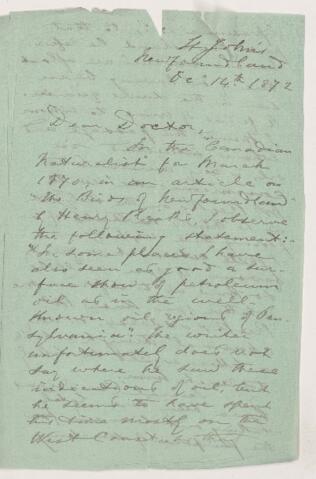 St Johns
Newfoundland
Oc 14th 1872
Dear Doctor,
In the Canadian
Naturalist for March
1870, in an article on
the Birds of Newfoundland
by Henry Reeks, I observe
the following statement:-
"In some places I have
also seen as good a sur-
face show of petroleum
oil as in the well
known oil regions of Pen-
sylvania". The writer
unfortunately does not
say where he saw these
indications of oil, but
he seems to have spent
his time mostly on the
West Coast